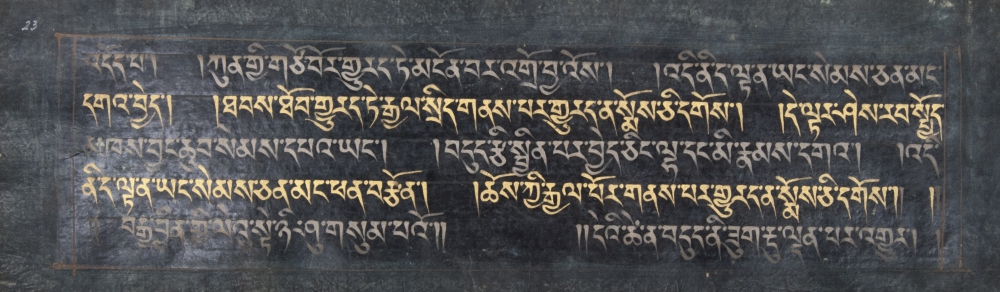 23
འདོད་པ། །ཀུན་གྱི་གཙོ་བོར་གྱུརད་ཏེ་མངོན་བར་འགྲོ་བྱ་འོས། །འདི་ནི་དེ་ལྟ་ན་ཡང་སེམས་ཅན་མང་
དགའ་བྱེད། །ཐབས་ཐོབ་གྱུརད་ཏེ་རྒྱལ་སྲིད་གནས་པར་གྱུརད་ན་སྨོས་ཅི་དགོས། །དེ་ལྟར་ཤེས་རབ་སྤྱོད་
མཁས་བྱང་ཆུབ་སེམས་དཔའ་ཡང་། །བདུད་རྩི་སྦྱིན་པར་བྱེད་ཅིང་ལྷ་དང་མི་རྣམས་དགའ། །འདི་
ནི་དེ་ལྟ་ན་ཡང་སེམས་ཅན་མང་ཕན་བརྩོན། །ཆོས་ཀྱི་རྒྱལ་པོར་གནས་པར་གྱུརད་ན་སྨོས་ཅི་དགོས། །
བརྒྱ་བྱིན་གྱི་ལེའུ་སྟེ་ཉི་ཤུ་གསུམ་པའོ།། །།དེའི་ཚེ་ན་བདུད་ནི་ཟུག་རྔུ་ལྡན་པར་འགྱུར།